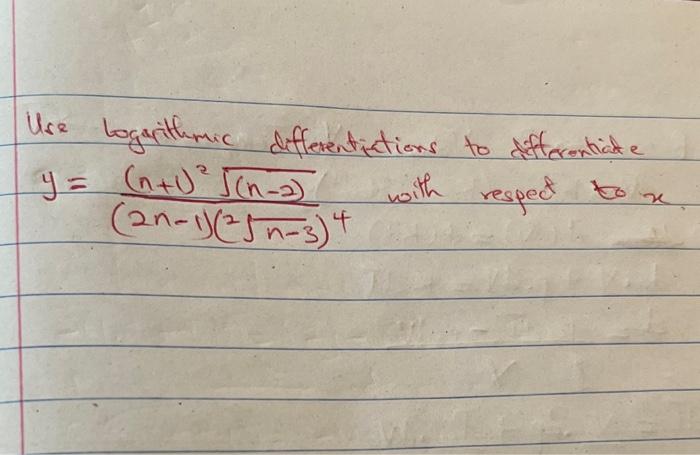 Use Logarithmic differentiations to differentiate
y = (x+1)² √(x-2) / (2x-1)(²√x-3)⁴ with respect to x.